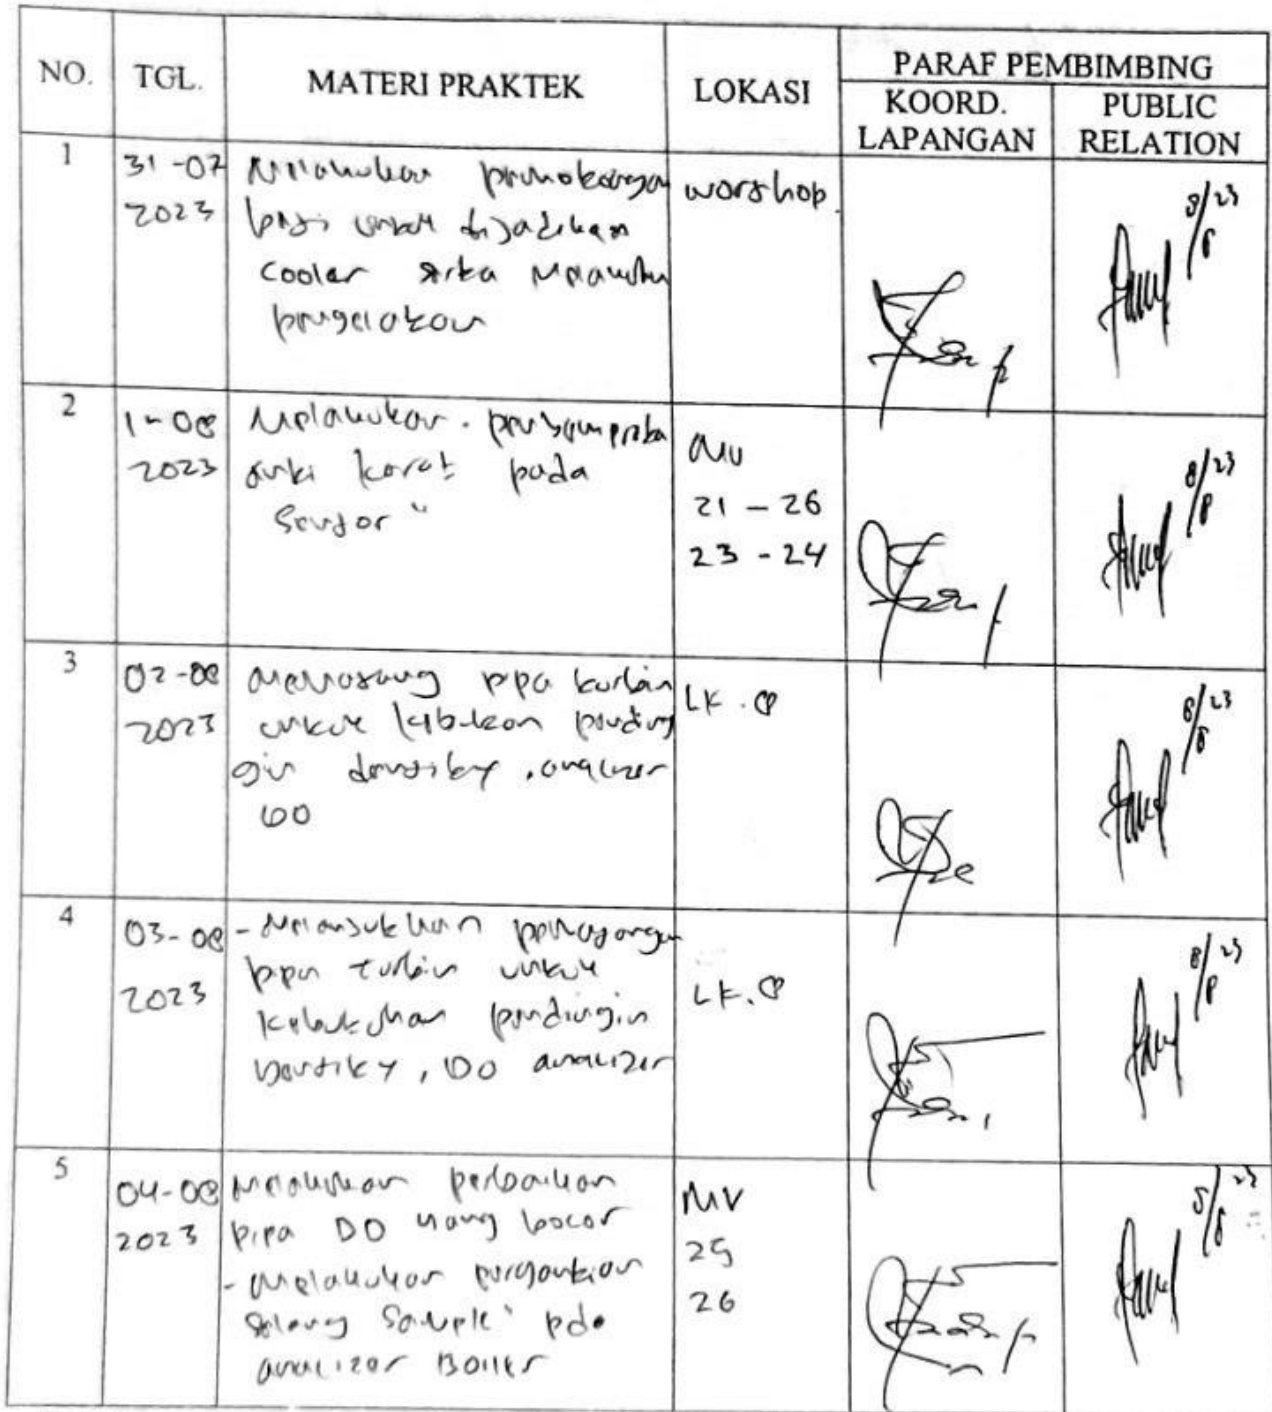 NO.
TGL.
MATERI PRAKTEK
LOKASI
PARAF PEMBIMBING
KOORD.
LAPANGAN
PUBLIC
RELATION
1
31-07
2023
Melakukan pemotongan
besi untuk dijadikan
cooler serta melakukan
pengelakan
worshop
8/23
2
1-08
2023
Melakukan
anti karat pada
Sensor "
MU
21 - 26
23 - 24
8/23
8
3
02-08
2023
Memasang pipa turbin
untuk pending
gin analizer
DO
LK. 8
8/23
8
4
03-08
2023
- Melanjutkan pemasangan
pipa turbin untuk
kebutuhan pendingin
, DO analizer
LK. 8
8/23
8
5
04-08
2023
Melakukan perbaikan
pipa DO yang bocor
- Melakukan pergantian
selang Sample" pda
analizer Boiler
MV
25
26
8/23
8